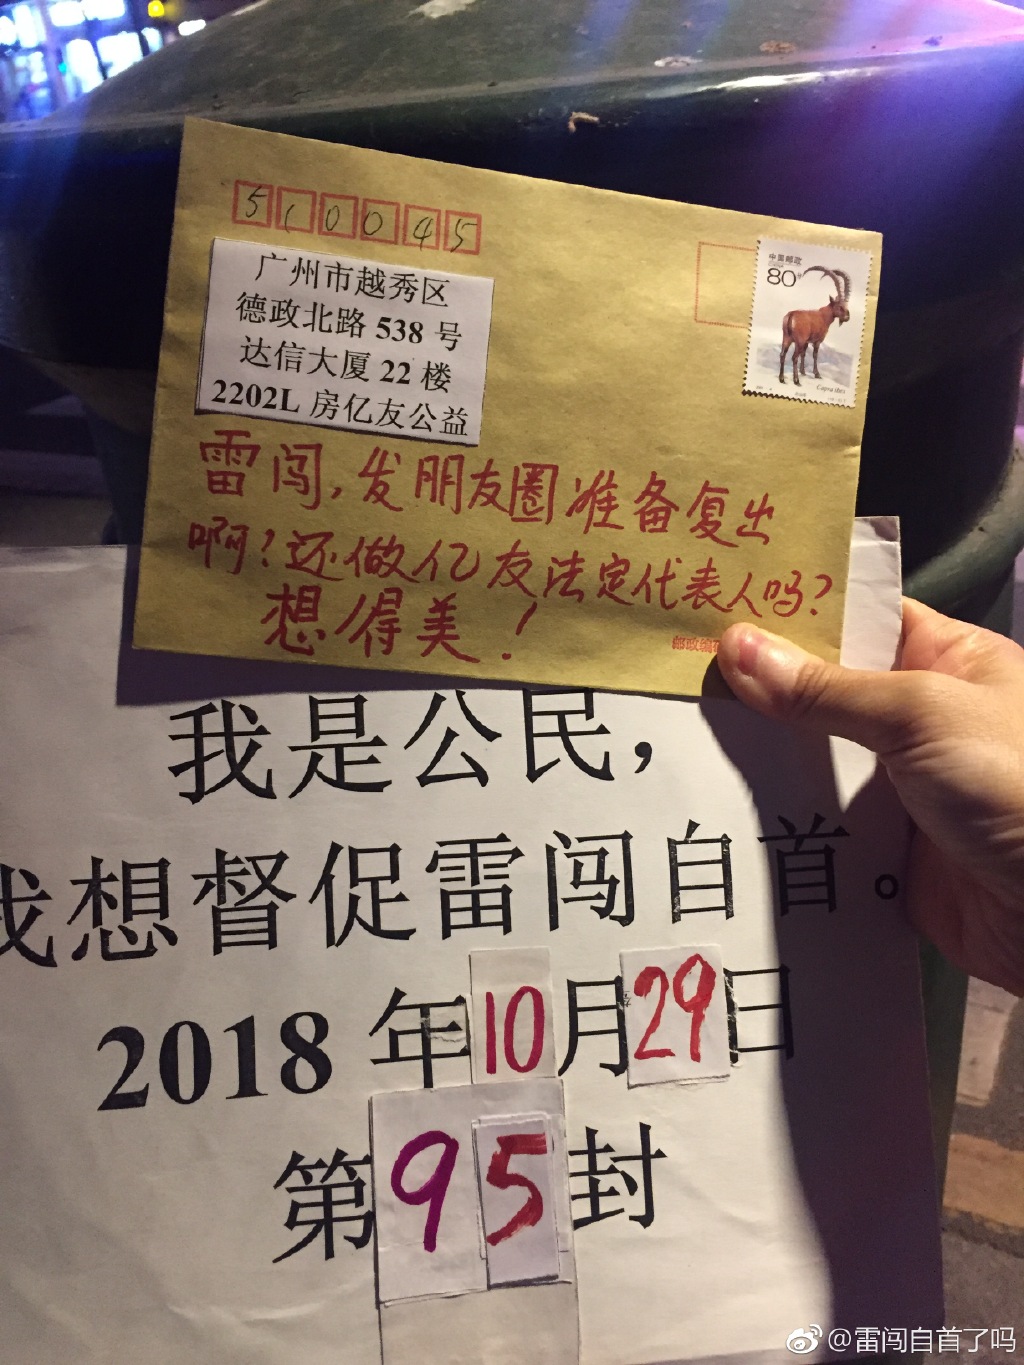 510045
中国邮政
80分
广州市越秀区
德政北路 538 号
达信大厦 22 楼
2202L 房亿友公益
Capra ibex
雷闯，发朋友圈准备复出
啊？还做亿友法定代表人吗？
想得美！
邮政编
我是公民，
我想督促雷闯自首。
2018 年10月29日
第95封
@雷闯自首了吗